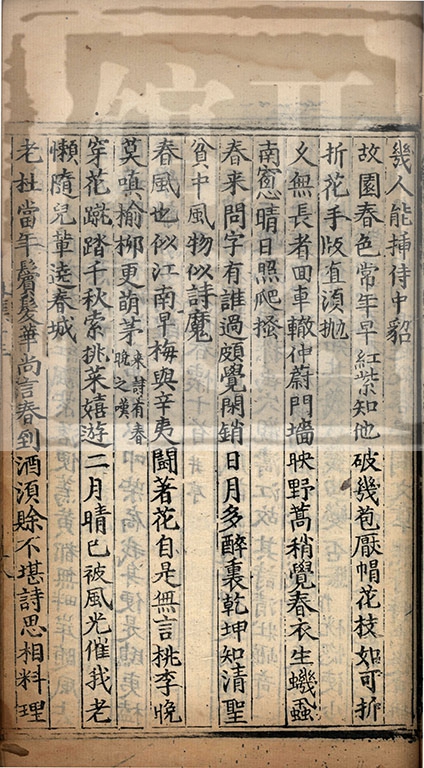 幾人能揷侍中貂
故園春色常年早紅紫知他破幾苞厭帽花枝如可折
折花手版直湏抛
乂無長者囬車轍仲蔚門墻映野蒿稍覺春衣生蟣蝨
南窻晴日照爬搔
春来問字有誰過頗覺閑銷日月多醉裏乾坤知清聖
貧中風物似詩魔
春風也似江南早梅與辛夷闘著花自是無言桃李晚
莫嗔榆栁更萌茅来詩有春晚之嘆
穿花蹴踏千秋索挑菜嬉遊二月晴已被風光催我老
懶隨兒輩遶春城
老杜當年鬢髮華尚言春到酒湏賒不堪詩思相料理